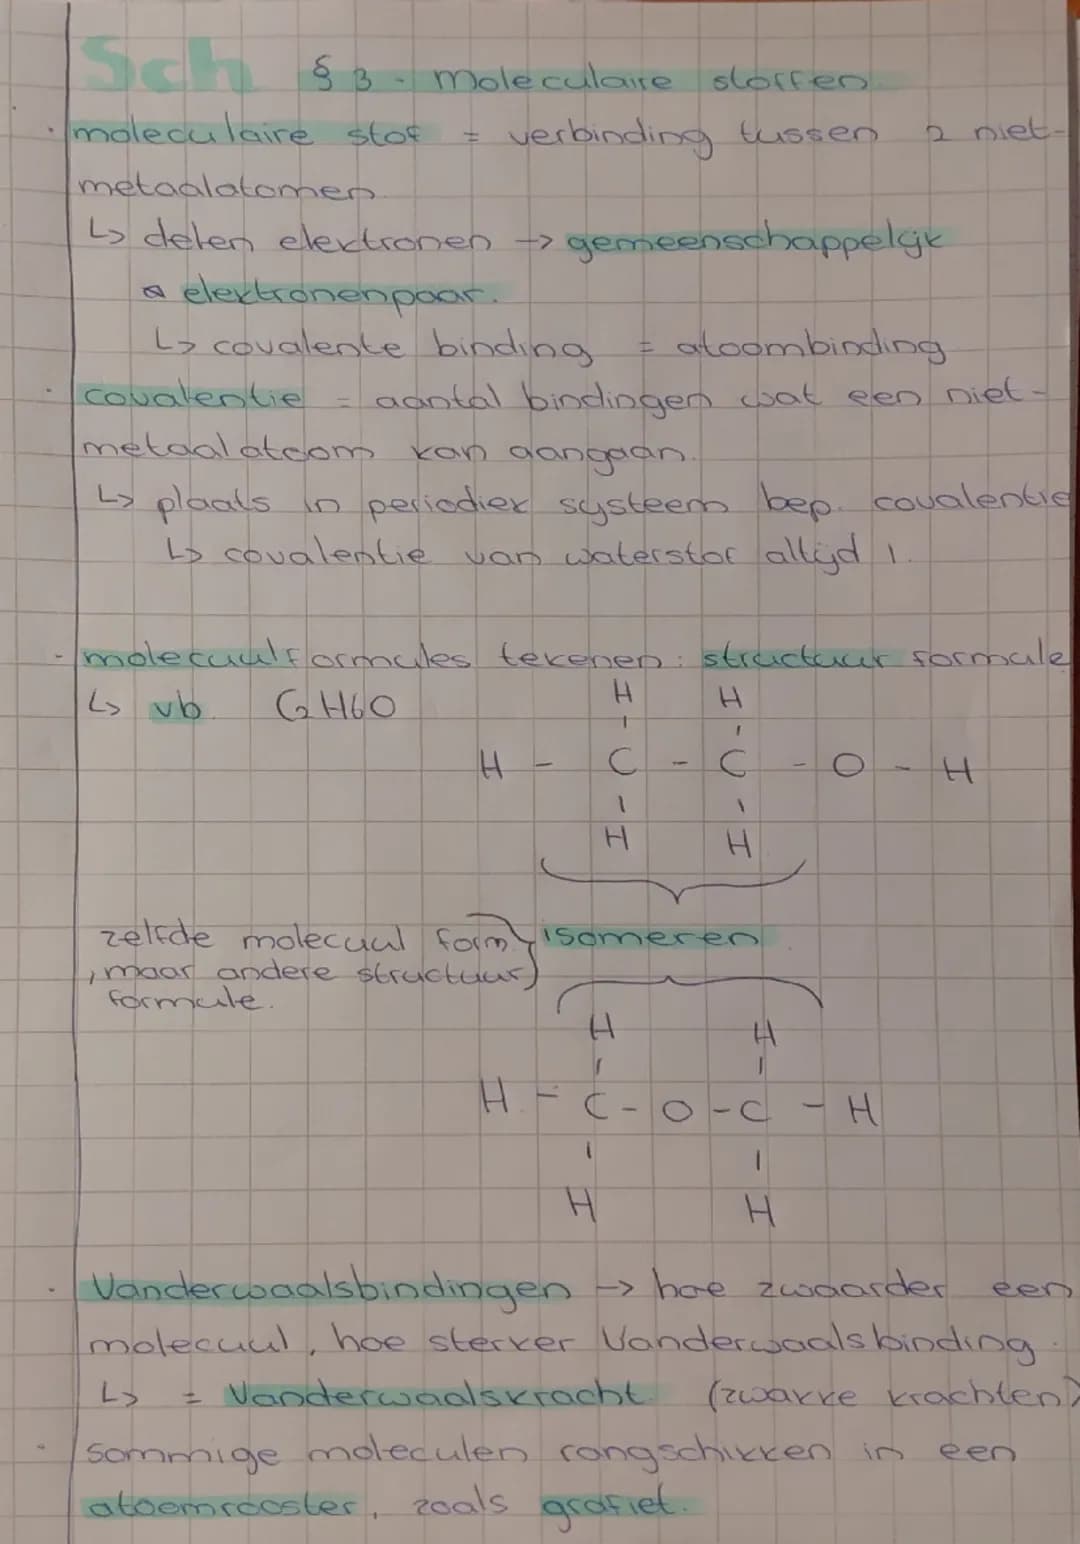 Sch § 3 - moleculaire stoffen
· moleculaire stof = verbinding tussen 2 niet-
metaalatomen.
↳ delen elektronen → gemeenschappelijk
elektronenpaar.
↳ covalente binding = atoombinding
· covalentie = aantal bindingen wat een niet-
metaalatoom kan aangaan.
↳ plaats in periodiek systeem bep. covalentie
↳ covalentie van waterstof altijd 1.
- molecuulformules tekenen: structuur formule
↳ vb. C2H6O
H H
H - C - C - O - H
H H
zelfde molecuul form. } isomeren
, maar andere structuur
formule.
H H
H - C - O - C - H
H H
· Vanderwaalsbindingen → hoe zwaarder een
molecuul, hoe sterker Vanderwaalsbinding.
↳ = Vanderwaalskracht. (zwakke krachten)
· sommige moleculen rangschikken in een
atoomrooster, zoals grafiet.